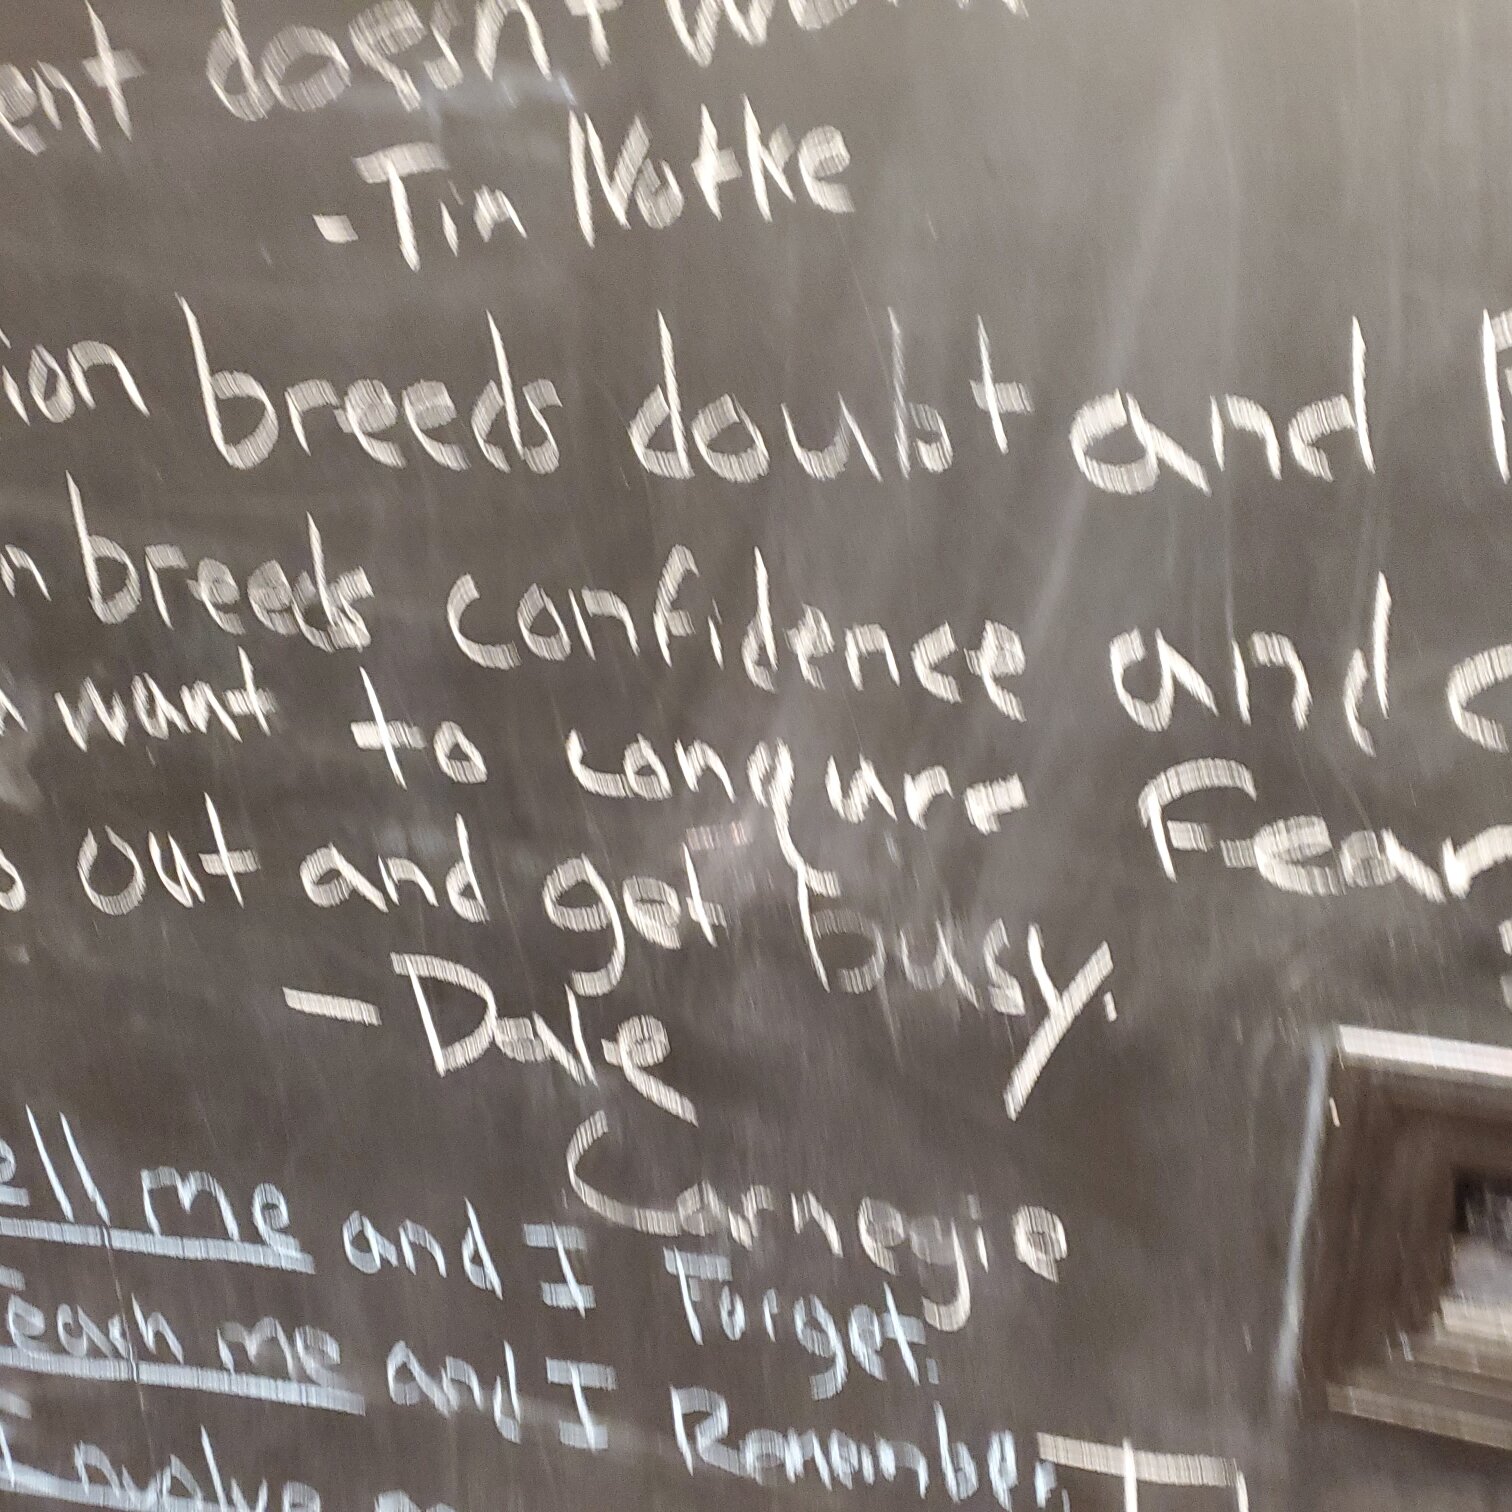 ent doesn't
- Tim Notke
ion breeds doubt and
n breeds confidence and
want to conqure Fear
out and get busy.
- Dale
Carnegie
ell me and I Forget.
Teach me and I Remember.
Involve